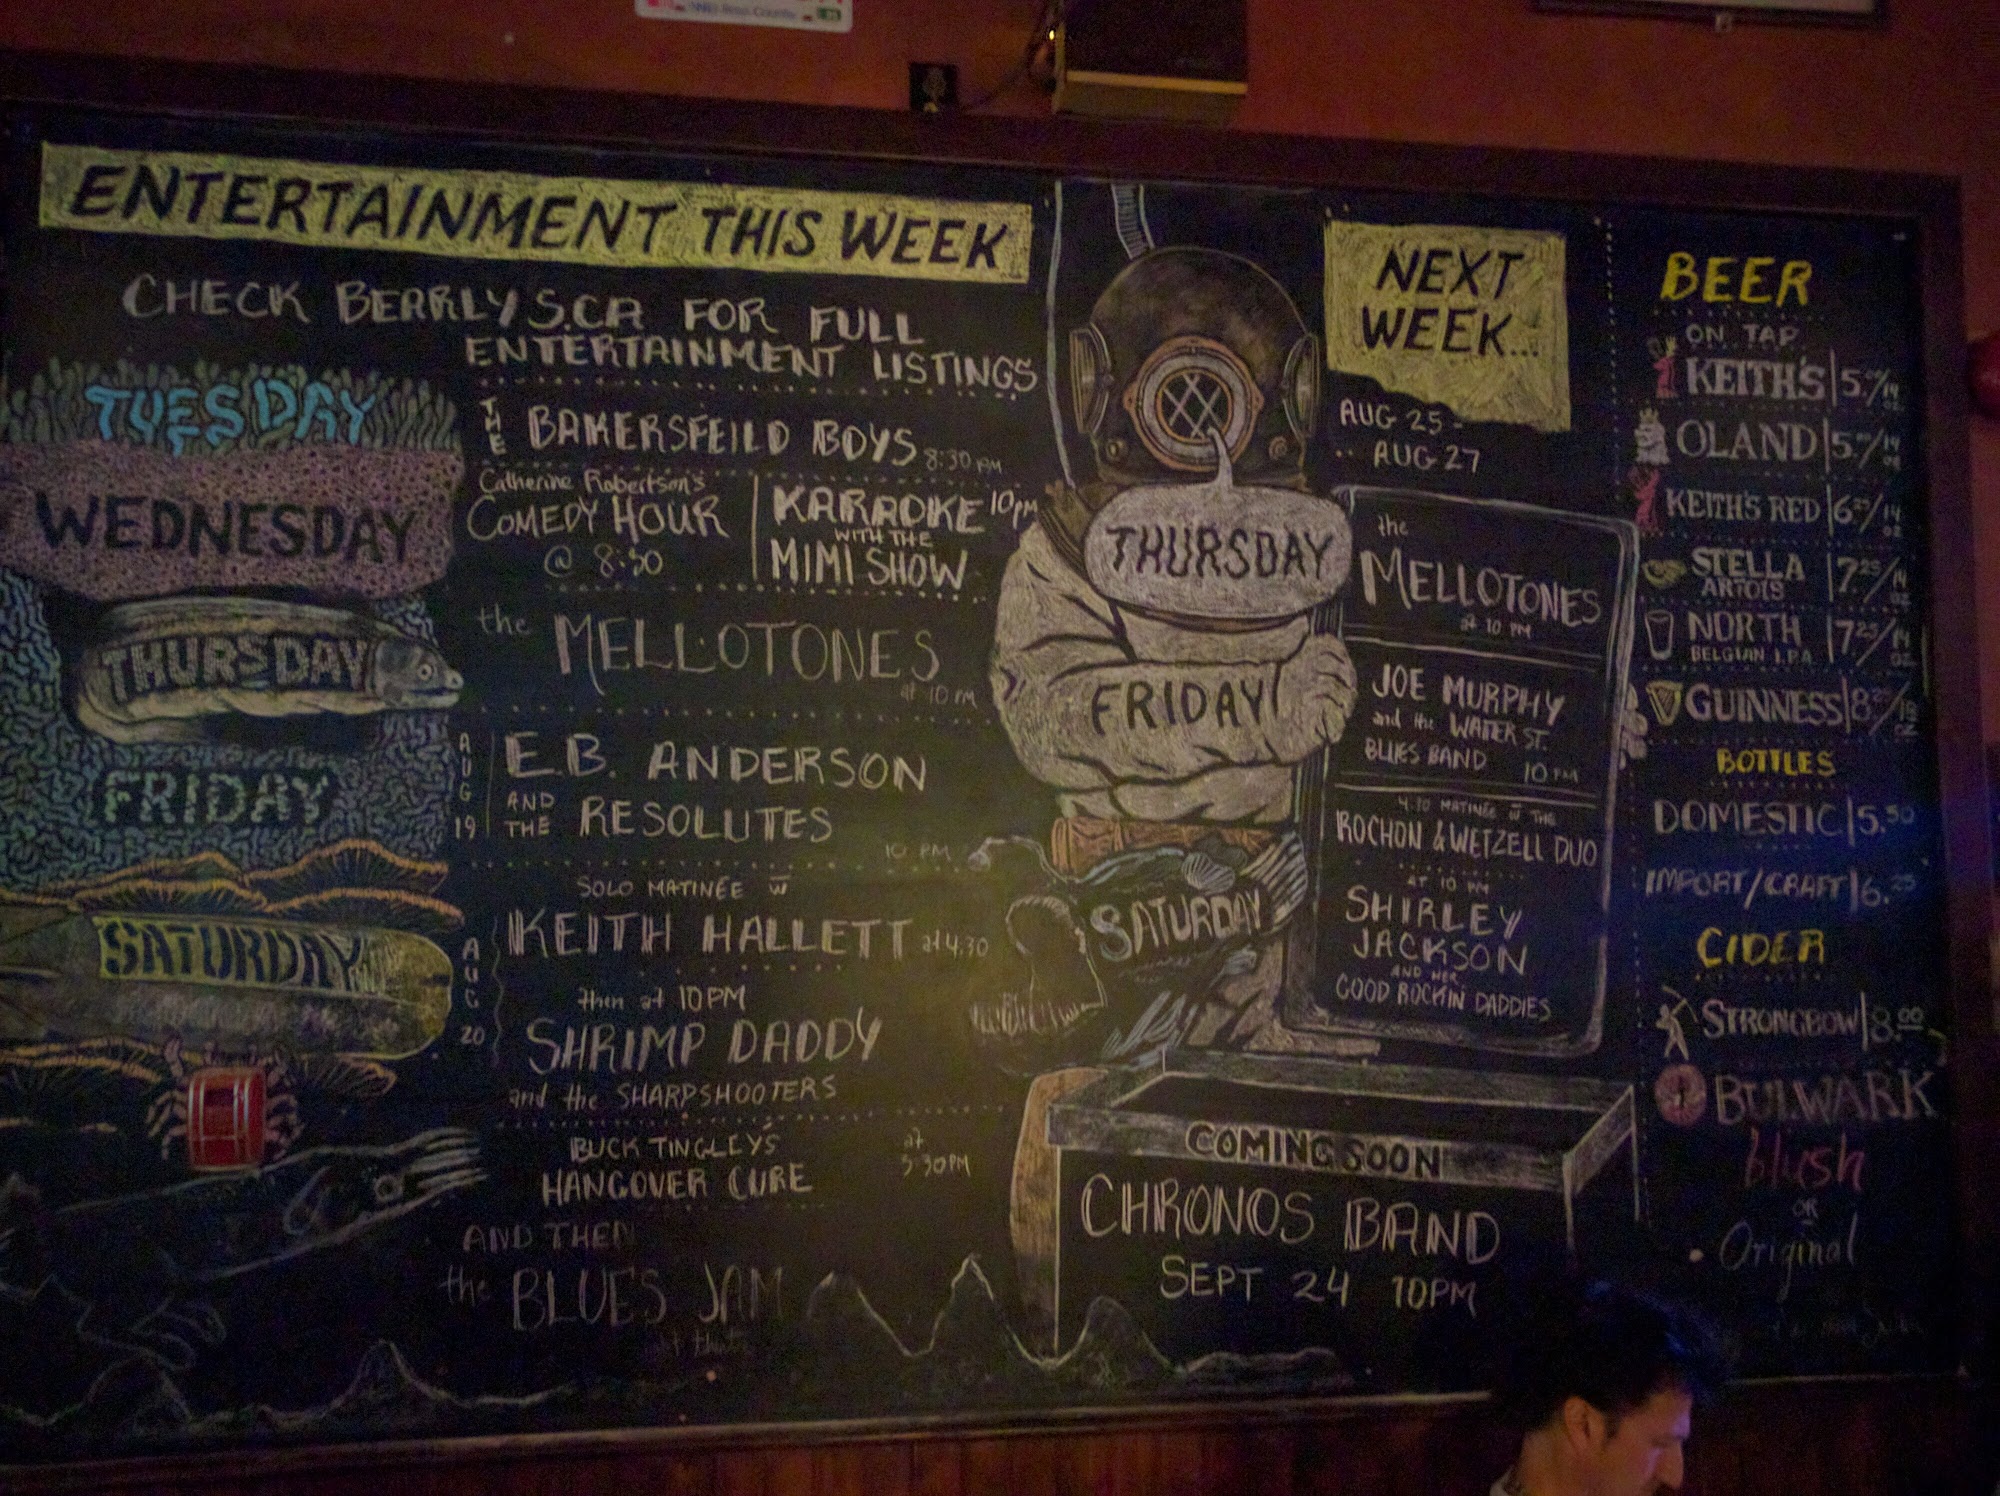 ENTERTAINMENT THIS WEEK
CHECK BEARLY'S.CA FOR FULL
ENTERTAINMENT LISTINGS
TUESDAY
THE BAKERSFEILD BOYS 8:30 PM
WEDNESDAY
Catherine Robertson's
COMEDY HOUR
@ 8:30
KARAOKE 10pm
WITH THE
MIMI SHOW
THURSDAY
the MELLOTONES
at 10 PM
FRIDAY
AUG 19
E.B. ANDERSON
AND THE RESOLUTES
10 PM
SATURDAY
AUG 20
SOLO MATINÉE w
KEITH HALLETT at 4:30
then at 10PM
SHRIMP DADDY
and the SHARPSHOOTERS
BUCK TINGLEY'S
HANGOVER CURE
at
3:30PM
AND THEN
the BLUES JAM
NEXT
WEEK...
AUG 25 -
AUG 27
THURSDAY
the
MELLOTONES
at 10 PM
FRIDAY
JOE MURPHY
and the WATER ST.
BLUES BAND 10 PM
SATURDAY
4:30 MATINÉE w THE
ROCHON & WETZELL DUO
AT 10 PM
SHIRLEY
JACKSON
AND HER
GOOD ROCKIN DADDIES
COMING SOON
CHRONOS BAND
SEPT 24 10PM
BEER
ON TAP
KEITH'S 5./14 oz
OLAND 5./14 oz
KEITH'S RED 6.25/14 oz
STELLA
ARTOIS 7.25/14 oz
NORTH
BELGIAN I.P.A 7.25/14 oz
GUINNESS 8.25/18 oz
BOTTLES
DOMESTIC 5.50
IMPORT/CRAFT 6.25
CIDER
STRONGBOW 8.00
BULWARK
blush
OR
Original